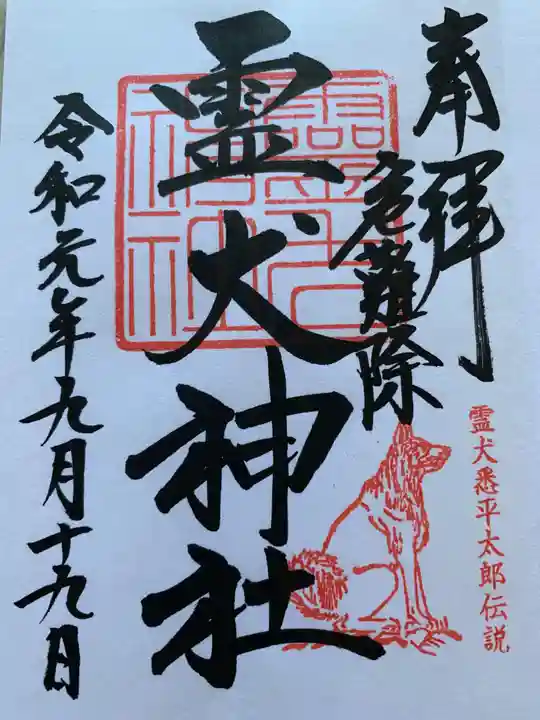 奉拝
危難除
霊犬神社
霊犬悉平太郎伝説
令和元年九月十九日